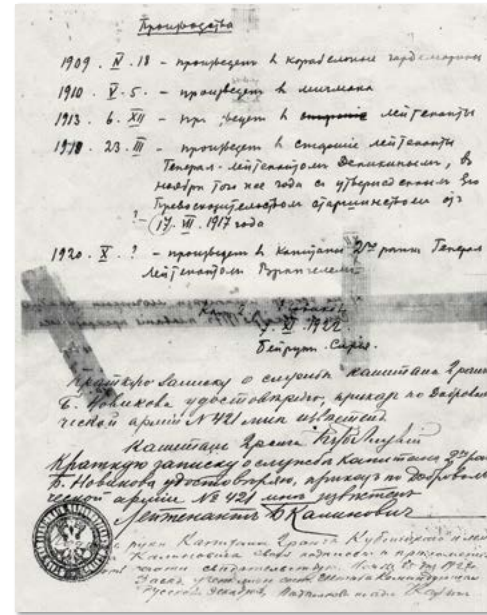 Производства
1909. IV. 18 - произведен в корабельные гардемарины
1910. V. 5. - произведен в мичмана
1913. 6. XII - произведен в лейтенанты
1918. 23. III - произведен в старшие лейтенанты
Генерал-лейтенантом Деникиным, в
ноябре того же года с утвержденным Его
Превосходительством старшинством от
?- (17. VII. 1917 года
1920. X. ? - произведен в капитаны 2го ранга Генерал
Лейтенантом Врангелем
Кап. 2 Новиков
7. XI. 1922
Бейрут. Сирия.
Краткую записку о службе капитана 2 ранга
Б. Новикова удостоверяю, приказ по Доброволь
ческой армии N 421 мне известен
Капитан 2 ранга
Краткую записку о службе Капитана 2го ранга
Б. Новикова удостоверяю, приказ по Доброволь
ческой армии № 421 мне известен
Лейтенант Б Калинович
руки Капитана 2 ранга и лей
Калиновича свои подписи и приложением
печати свидетельствую.
Русской Эскадры,